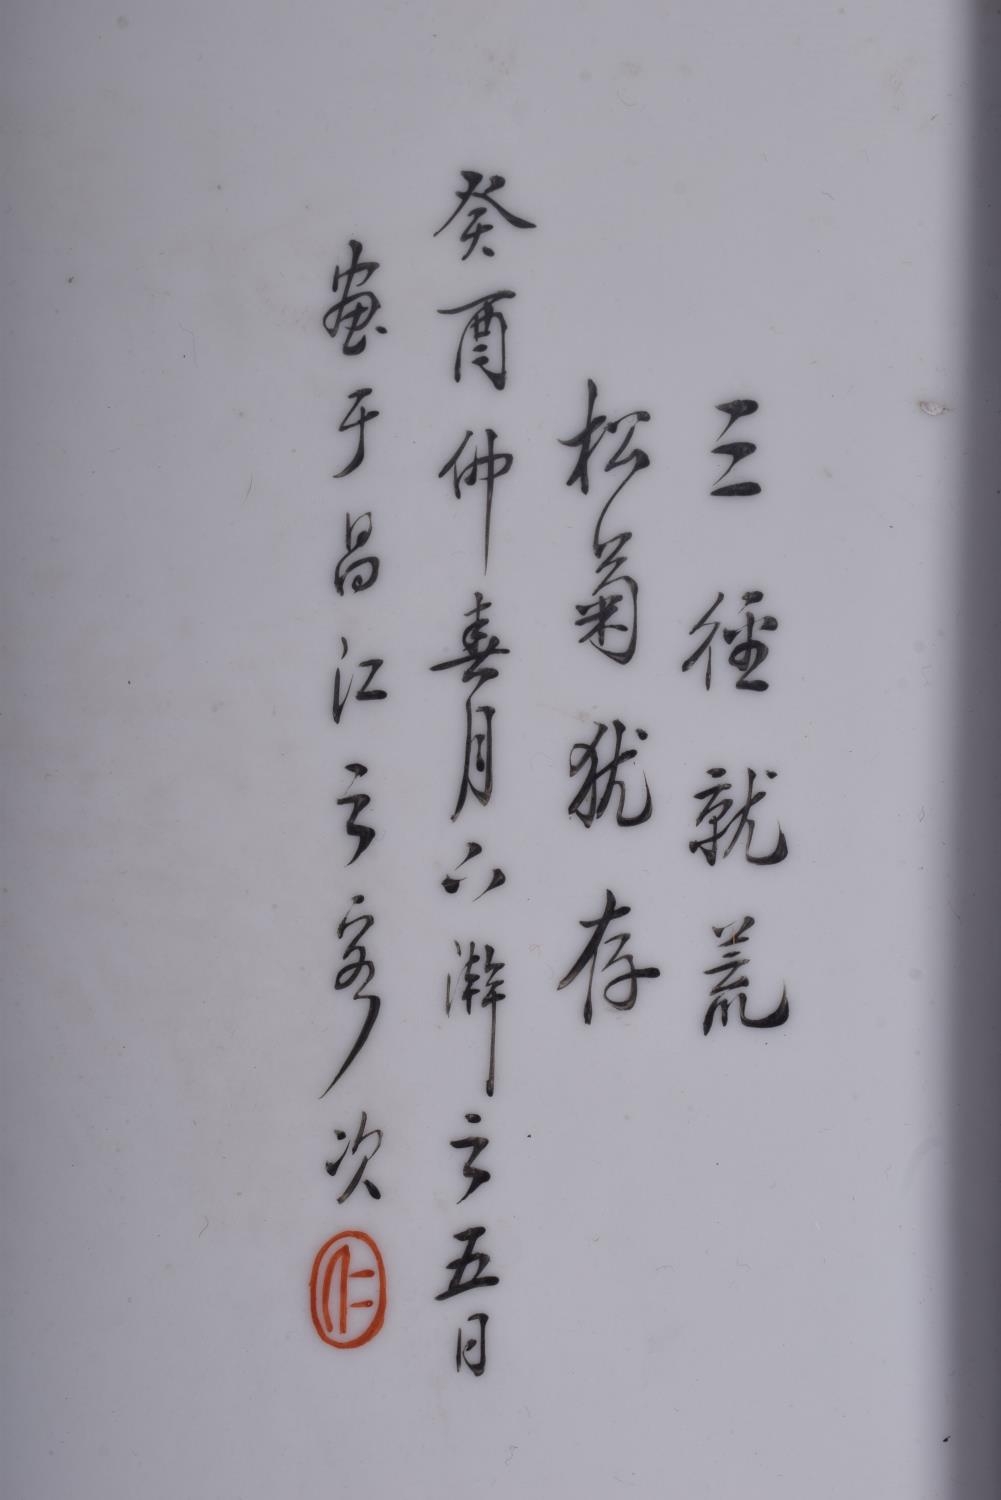 三徑就荒
松菊猶存
癸酉仲春月下澣之五日
畫于昌江之客次
作